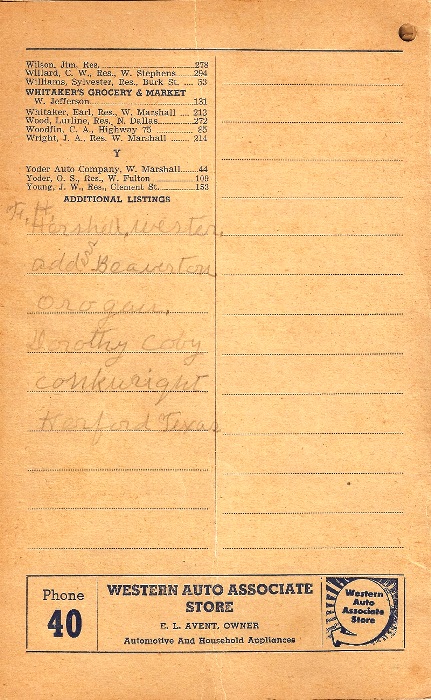 Wilson, Jim, Res. 278
Willard, C. W., Res., W. Stephens 294
Williams, Sylvester, Res., Burk St. 53
WHITAKER'S GROCERY & MARKET
W. Jefferson 131
Whitaker, Earl, Res., W. Marshall 213
Wood, Lurline, Res., N. Dallas 272
Woodfin, C. A., Highway 75 85
Wright, J. A., Res. W. Marshall 214
Y
Yoder Auto Company, W. Marshall 44
Yoder, O. S., Res., W. Fulton 109
Young, J. W., Res., Clement St. 153
ADDITIONAL LISTINGS
Hershell, Wester,
add Beaverton
Orogan,
Dorothy Coby
conkuright
Texas
Phone
40
WESTERN AUTO ASSOCIATE
STORE
E. L. AVENT, OWNER
Automotive And Household Appliances
Western
Auto
Associate
Store